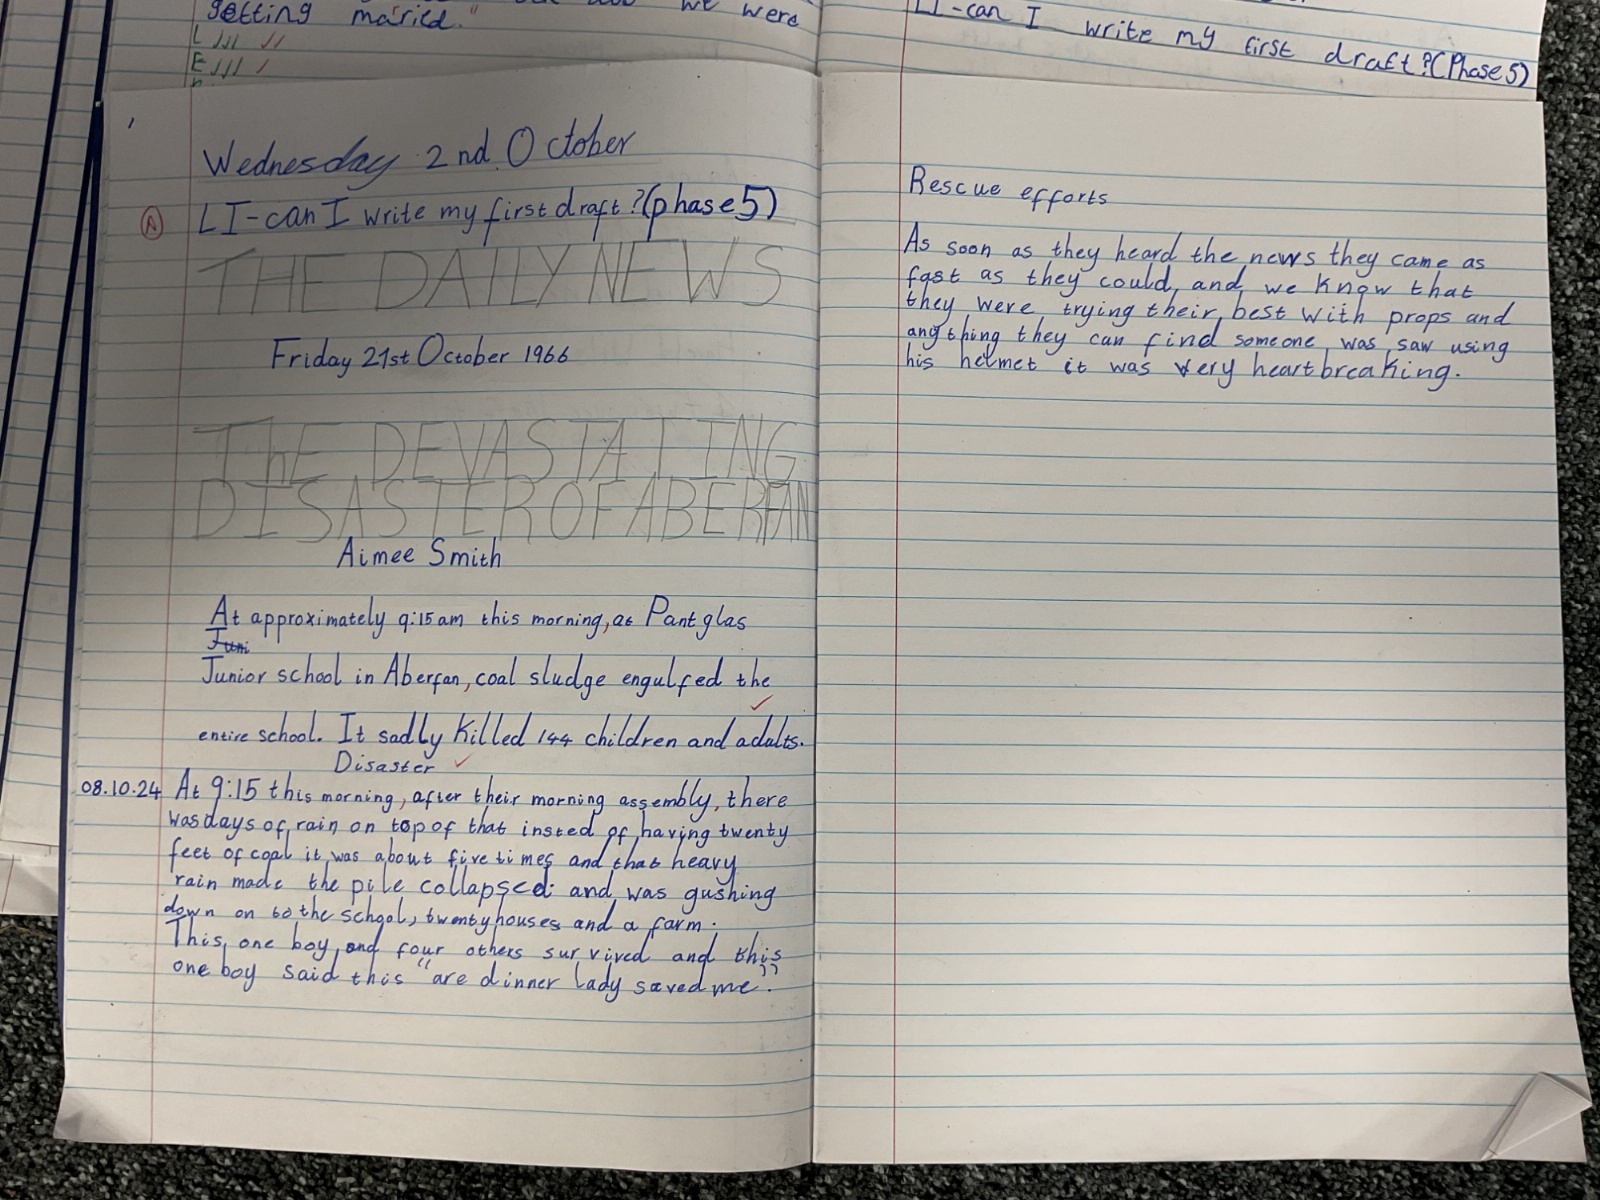 getting married."
we were
L
E
LI-can I write my first draft?(Phase 5)
Wednesday 2nd October
A
LI-can I write my first draft?(phase5)
THE DAILY NEWS
Friday 21st October 1966
ThE DEVASTATING
DISASTER OF ABERFAN
Aimee Smith
At approximately 9:15am this morning, at Pantglas
Juni
Junior school in Aberfan, coal sludge engulfed the
entire school. It sadly killed 144 children and adults.
Disaster
08.10.24 At 9:15 this morning, after their morning assembly, there
was days of rain on top of that insted of having twenty
feet of coal it was about five times and that heavy
rain made the pile collapsed. and was gushing
down on to the school, twenty houses and a farm.
This one boy and four others survived and this
one boy said this "are dinner lady saved me."
Rescue efforts
As soon as they heard the news they came as
fast as they could, and we know that
they were trying their best with props and
anything they can find someone was saw using
his helmet it was very heartbreaking.